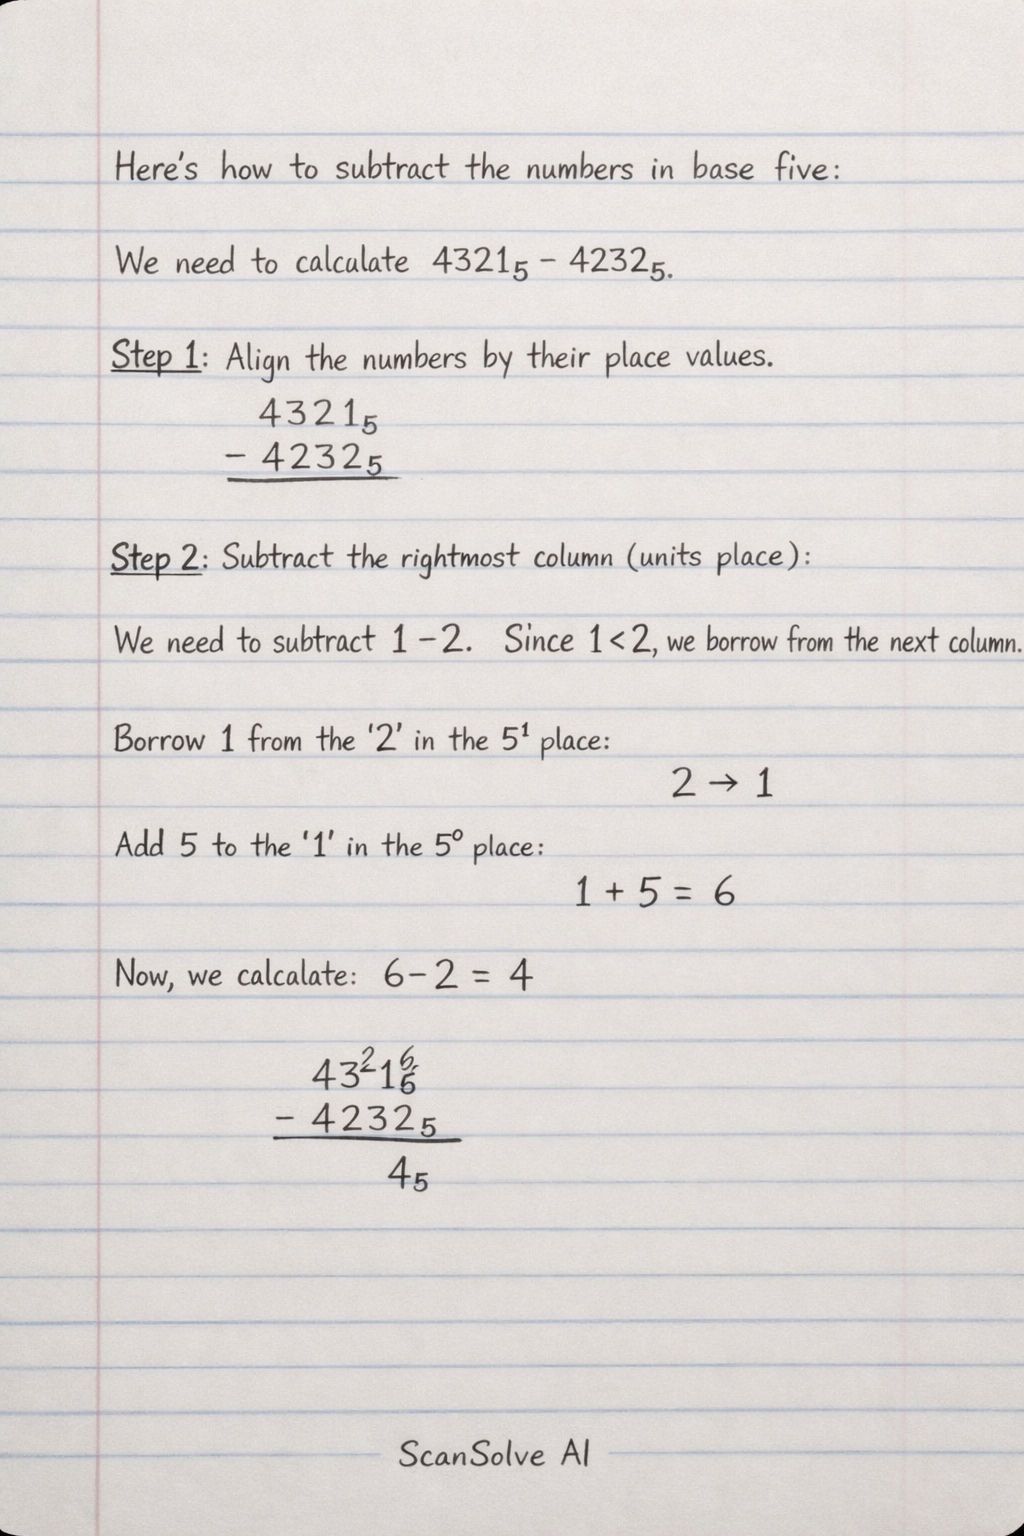 Here's how to subtract the numbers in base five:
We need to calculate 4321₅ − 4232₅.
Step 1: Align the numbers by their place values.
4321₅
− 4232₅
Step 2: Subtract the rightmost column (units place):
We need to subtract 1 − 2. Since 1 < 2, we borrow from the next column.
Borrow 1 from the '2' in the 5¹ place:
2 → 1
Add 5 to the '1' in the 5⁰ place:
1 + 5 = 6
Now, we calcalate: 6 − 2 = 4
43²1⁶₆
− 4232₅
4₅
ScanSolve AI